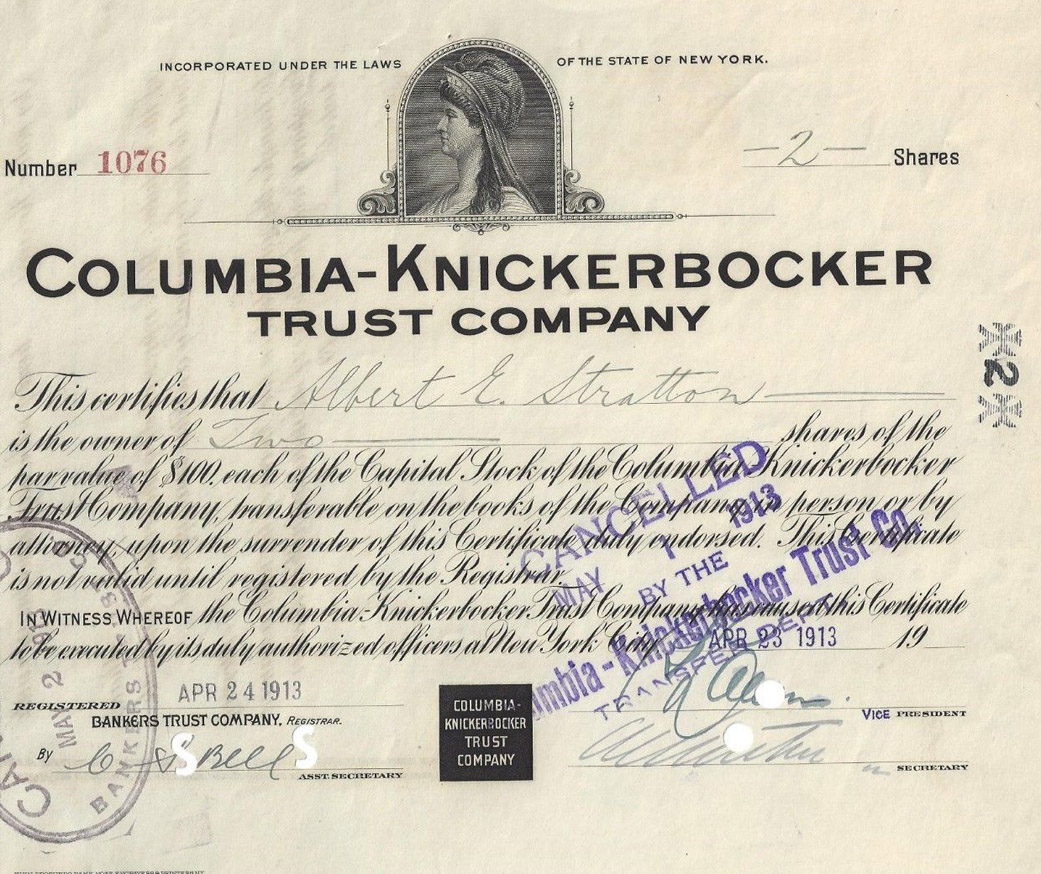 INCORPORATED UNDER THE LAWS OF THE STATE OF NEW YORK.
Number 1076 -2- Shares
COLUMBIA-KNICKERBOCKER
TRUST COMPANY
X2X
This certifies that Albert E. Stratton
is the owner of Two shares of the
par value of $100. each of the Capital Stock of the Columbia-Knickerbocker
Trust Company, transferable on the books of the Company in person or by
attorney, upon the surrender of this Certificate duly endorsed. This Certificate
is not valid until registered by the Registrar.
IN WITNESS WHEREOF the Columbia-Knickerbocker Trust Company has caused this Certificate
to be executed by its duly authorized officers at New York City APR 23 1913 19
CANCELLED
MAY 1 1913
BY THE
Columbia-Knickerbocker Trust Co.
TRANSFER DEPT.
REGISTERED APR 24 1913
BANKERS TRUST COMPANY, REGISTRAR.
By C S Bell
ASST. SECRETARY
COLUMBIA-
KNICKERBOCKER
TRUST
COMPANY
VICE PRESIDENT
SECRETARY
MAY 2
BANKERS